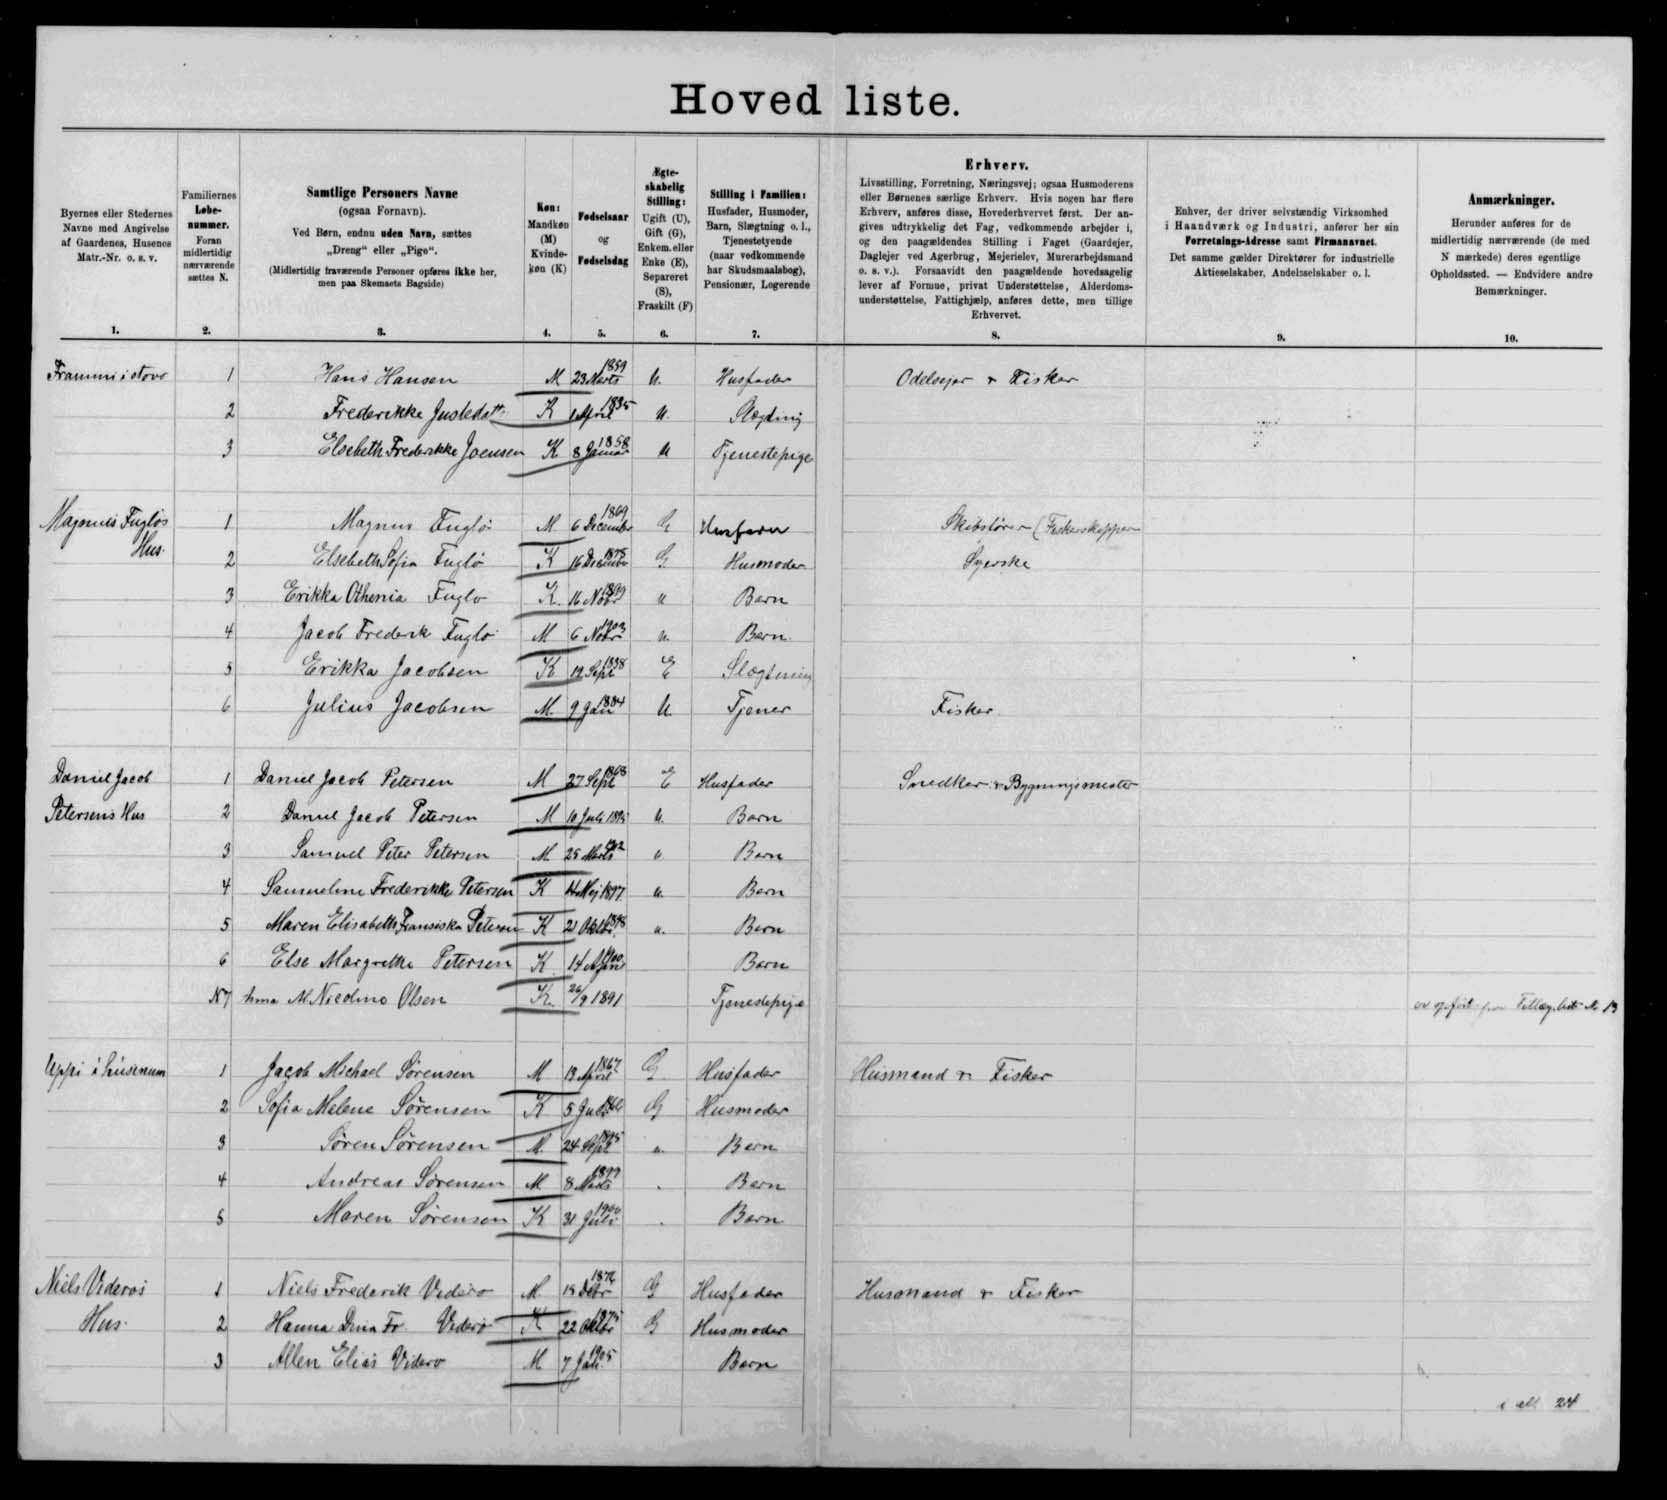 Hoved liste.
Byernes eller Stedernes
Navne med Angivelse
af Gaardenes, Husenes
Matr.-Nr. o. s. v.
1.
Familiernes
Løbe-
nummer.
Foran
midlertidig
nærværende
sættes N.
2.
Samtlige Personers Navne
(ogsaa Fornavn).
Ved Børn, endnu uden Navn, sættes
„Dreng“ eller „Pige“.
(Midlertidig fraværende Personer opføres ikke her,
men paa Skemaets Bagside)
3.
Køn:
Mandkøn
(M)
Kvinde-
køn (K)
4.
Fødselsaar
og
Fødselsdag
5.
Ægte-
skabelig
Stilling:
Ugift (U),
Gift (G),
Enkem. eller
Enke (E),
Separeret
(S),
Fraskilt (F)
6.
Stilling i Familien:
Husfader, Husmoder,
Barn, Slægtning o. l.,
Tjenestetyende
(naar vedkommende
har Skudsmaalsbog),
Pensionær, Logerende
7.
Erhverv.
Livsstilling, Forretning, Næringsvej; ogsaa Husmoderens
eller Børnenes særlige Erhverv. Hvis nogen har flere
Erhverv, anføres disse, Hovederhvervet først. Der an-
gives udtrykkelig det Fag, vedkommende arbejder i,
og den paagældendes Stilling i Faget (Gaardejer,
Daglejer ved Agerbrug, Mejerielev, Murerarbejdsmand
o. s. v.). Forsaavidt den paagældende hovedsagelig
lever af Formue, privat Understøttelse, Alderdoms-
understøttelse, Fattighjælp, anføres dette, men tillige
Erhvervet.
8.
Enhver, der driver selvstændig Virksomhed
i Haandværk og Industri, anfører her sin
Forretnings-Adresse samt Firmanavnet.
Det samme gælder Direktører for industrielle
Aktieselskaber, Andelsselskaber o. l.
9.
Anmærkninger.
Herunder anføres for de
midlertidig nærværende (de med
N mærkede) deres egentlige
Opholdssted. — Endvidere andre
Bemærkninger.
10.
Frammi i stovo 1 Hans Hansen M 23 Marts 1859 U. Husfader Odelsejer & Fisker
2 Frederikke Justedatt. K 1 April 1835 U. Slægtning
3 Elsebeth Frederikke Joensen K 8 Januar 1858 U Tjenestepige
Magnus Fugløs 1 Magnus Fuglø M 6 December 1869 G Husfader Skibsfører (Fiskerskipper
Hus. 2 Elsebeth Sofia Fuglø K 16 December G Husmoder Syerske
3 Erikka Othenia Fuglø K. 16 Nobr 1899 u Barn
4 Jacob Frederik Fuglø M 6 Nobr 1903 u. Barn.
5 Erikka Jacobsen K 12 Sept 1838 E Slægtning
6 Julius Jacobsen M. 9 Jan 1884 U. Tjener Fisker
Daniel Jacob 1 Daniel Jacob Petersen M 27 Sept 1868 E Husfader Snedker & Bygningsmester
Petersens Hus 2 Daniel Jacob Petersen M 10 Juli 1895 U. Barn
3 Samuel Peter Petersen M 25 Marts 1902 u. Barn
4 Samueline Frederikke Petersen K 14 Maj 1897 u. Barn
5 Maren Elisabeth Fransiska Petersen K 21 Oktbr. 1898 u. Barn
6 Else Margrethe Petersen K 14 1900 Barn
N 7 M Nicolina Olsen K. 26/9 1891 Tjenestepige er opført paa Tillægsliste No 13
Uppi i húsunum 1 Jacob Michael Sørensen M 13 April 1867 G Husfader Husmand & Fisker
2 Sofia Malene Sørensen K 5 G Husmoder
3 Søren Sørensen M. 24 Sept 1895 u. Barn
4 Andreas Sørensen M 8 Marts 1899 Barn
5 Maren Sørensen K 31 Juli 1900 Barn
Niels Viderøs 1 Niels Frederik Viderø M. 18 Debr 1876 G Husfader Husmand & Fisker
Hus. 2 Hanna Dina Fr. Viderø K 22 Oktbr 1875 G Husmoder
3 Allen Elias Viderø M 7 Juli 1905 Barn
i alt 24